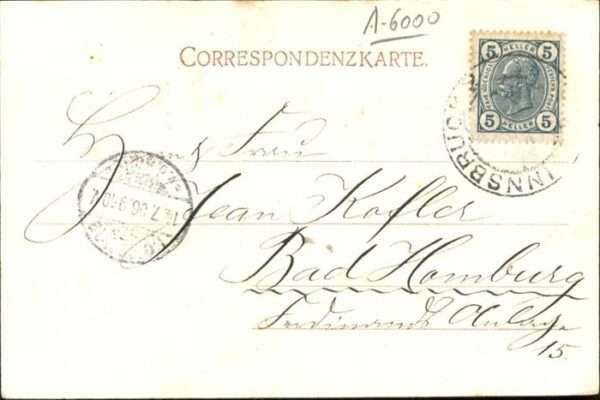 A-6000
CORRESPONDENZKARTE.
5 HELLER 5
5 HELLER 5
INNSBRUCK
Herrn & Frau
14.7.06.9-10
Jean Kofler
Bad Homburg
Ferdinands Anlage
15.